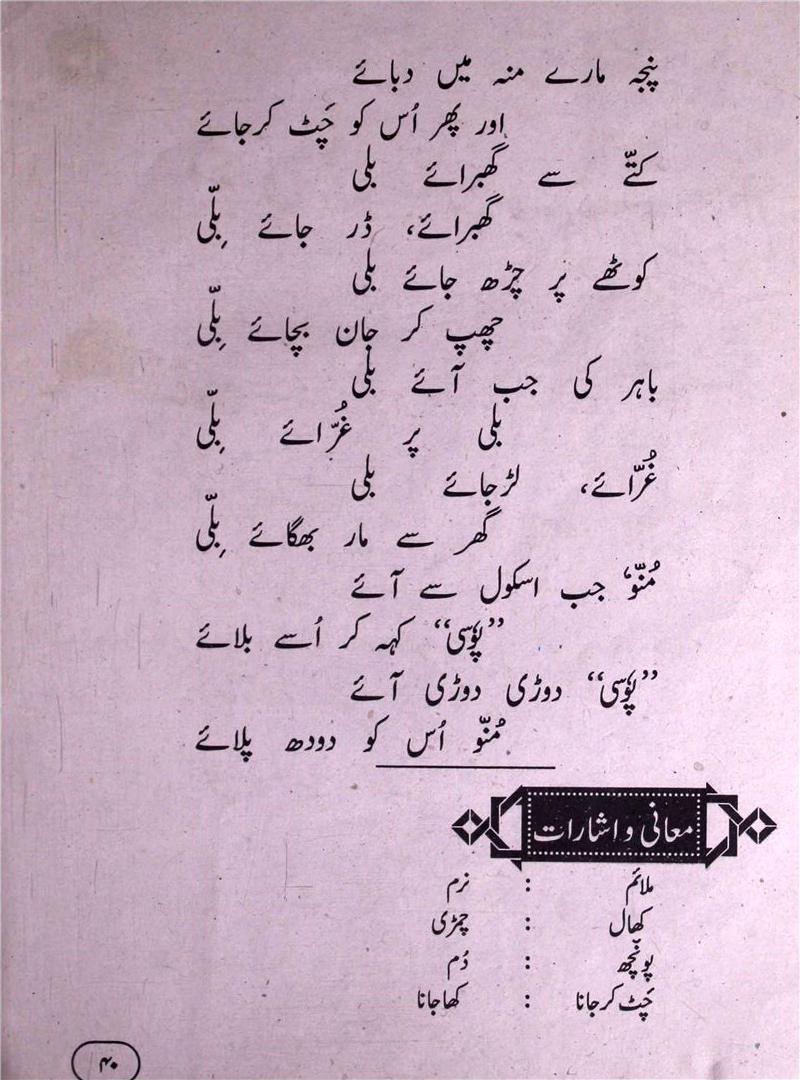 پنجہ مارے منہ میں دبائے
اور پھر اُس کو چَٹ کرجائے
کتّے سے گھبرائے بلی
گھبرائے، ڈر جائے بِلّی
کوٹھے پر چڑھ جائے بلی
چھپ کر جان بچائے بِلّی
باہر کی جب آئے بلی
بلی پر غُرّائے بِلّی
غُرّائے، لڑجائے بلی
گھر سے مار بھگائے بِلّی
مُنّو جب اسکول سے آئے
”پُوسی“ کہہ کر اُسے بلائے
”پُوسی“ دوڑی دوڑی آئے
مُنّو اُس کو دودھ پلائے
معانی و اشارات
ملائم : نرم
کھال : چمڑی
پونچھ : دُم
چَٹ کرجانا : کھاجانا
۴۰